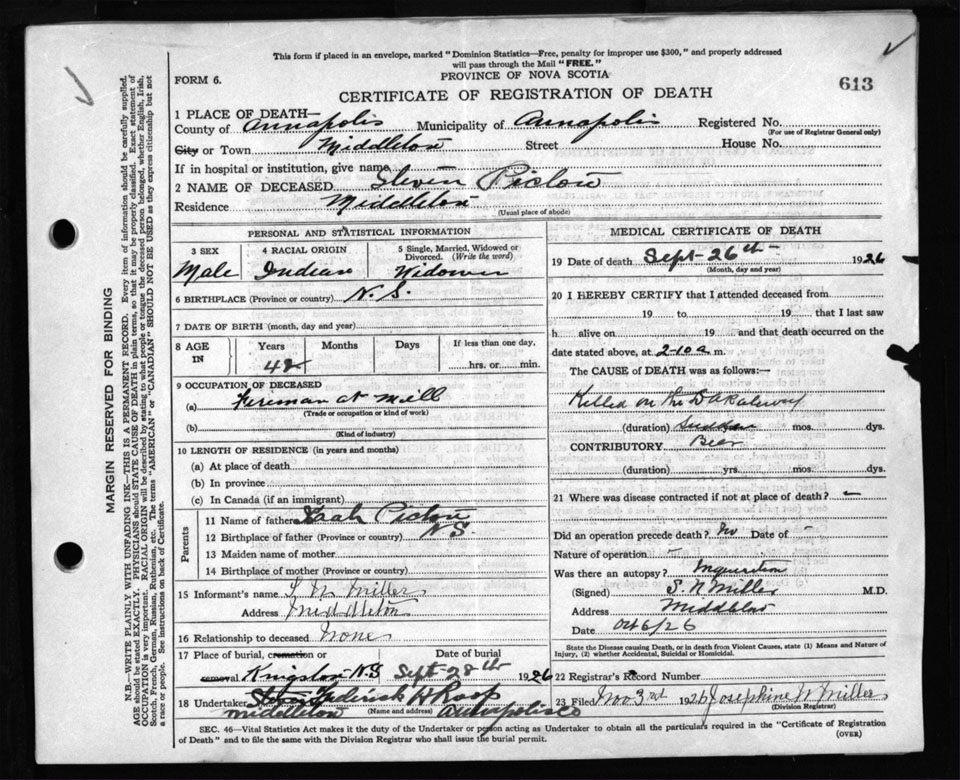 This form if placed in an envelope, marked "Dominion Statistics—Free, penalty for improper use $300," and properly addressed
will pass through the Mail "FREE."
FORM 6.
PROVINCE OF NOVA SCOTIA
CERTIFICATE OF REGISTRATION OF DEATH
613
1 PLACE OF DEATH—
County of Annapolis Municipality of Annapolis Registered No.
(For use of Registrar General only)
City or Town Middleton Street House No.
If in hospital or institution, give name —
2 NAME OF DECEASED Steven Pictou
Residence Middleton
(Usual place of abode)
PERSONAL AND STATISTICAL INFORMATION
3 SEX 4 RACIAL ORIGIN 5 Single, Married, Widowed or
Divorced. (Write the word)
Male Indian Widower
6 BIRTHPLACE (Province or country) N.S.
7 DATE OF BIRTH (month, day and year)
8 AGE IN Years Months Days If less than one day,
42 hrs. or min.
9 OCCUPATION OF DECEASED
(a) Fireman at Mill
(Trade or occupation or kind of work)
(b)
(Kind of industry)
10 LENGTH OF RESIDENCE (in years and months)
(a) At place of death
(b) In province
(c) In Canada (if an immigrant)
Parents
11 Name of father Pictou
12 Birthplace of father (Province or country) N.S.
13 Maiden name of mother
14 Birthplace of mother (Province or country)
15 Informant's name Miller
Address Middleton
16 Relationship to deceased None
17 Place of burial, cremation or Date of burial
removal Kingston N.S Sept 28th 1926
18 Undertaker Fredrick W Roop
Middleton (Name and address) Annapolis Co
MEDICAL CERTIFICATE OF DEATH
19 Date of death Sept 26th 1926
(Month, day and year)
20 I HEREBY CERTIFY that I attended deceased from
19 to 19 that I last saw
h alive on 19 and that death occurred on
date stated above, at 2-10 a m.
The CAUSE of DEATH was as follows:—
Killed on the D A Railway
(duration) Sudden mos. dys.
CONTRIBUTORY Beer
(duration) yrs. mos. dys.
21 Where was disease contracted if not at place of death? —
Did an operation precede death? No Date of -
Nature of operation -
Was there an autopsy? Inquisition
(Signed) S. N Miller M.D.
Address Middleton
Date Oct 6/26
State the Disease causing Death, or in death from Violent Causes, state (1) Means and Nature of
Injury, (2) whether Accidental, Suicidal or Homicidal.
22 Registrar's Record Number
23 Filed Nov 3rd 1926 Josephine W Miller
(Division Registrar)
SEC. 46—Vital Statistics Act makes it the duty of the Undertaker or person acting as Undertaker to obtain all the particulars required in the "Certificate of Registration
of Death" and to file the same with the Division Registrar who shall issue the burial permit.
(OVER)
MARGIN RESERVED FOR BINDING
N.B.—WRITE PLAINLY WITH UNFADING INK—THIS IS A PERMANENT RECORD. Every item of information should be carefully supplied.
AGE should be stated EXACTLY. PHYSICIANS should STATE CAUSE OF DEATH in plain terms, so that it may be properly classified. Exact statement of
OCCUPATION is very important. RACIAL ORIGIN will be described by stating to what people or tongue the deceased person belonged, whether English, Irish,
Scotch, French, German, Russian, Ruthenian, etc. The terms "AMERICAN" or "CANADIAN" SHOULD NOT BE USED as they express citizenship but not
a race or people. See instructions on back of Certificate.